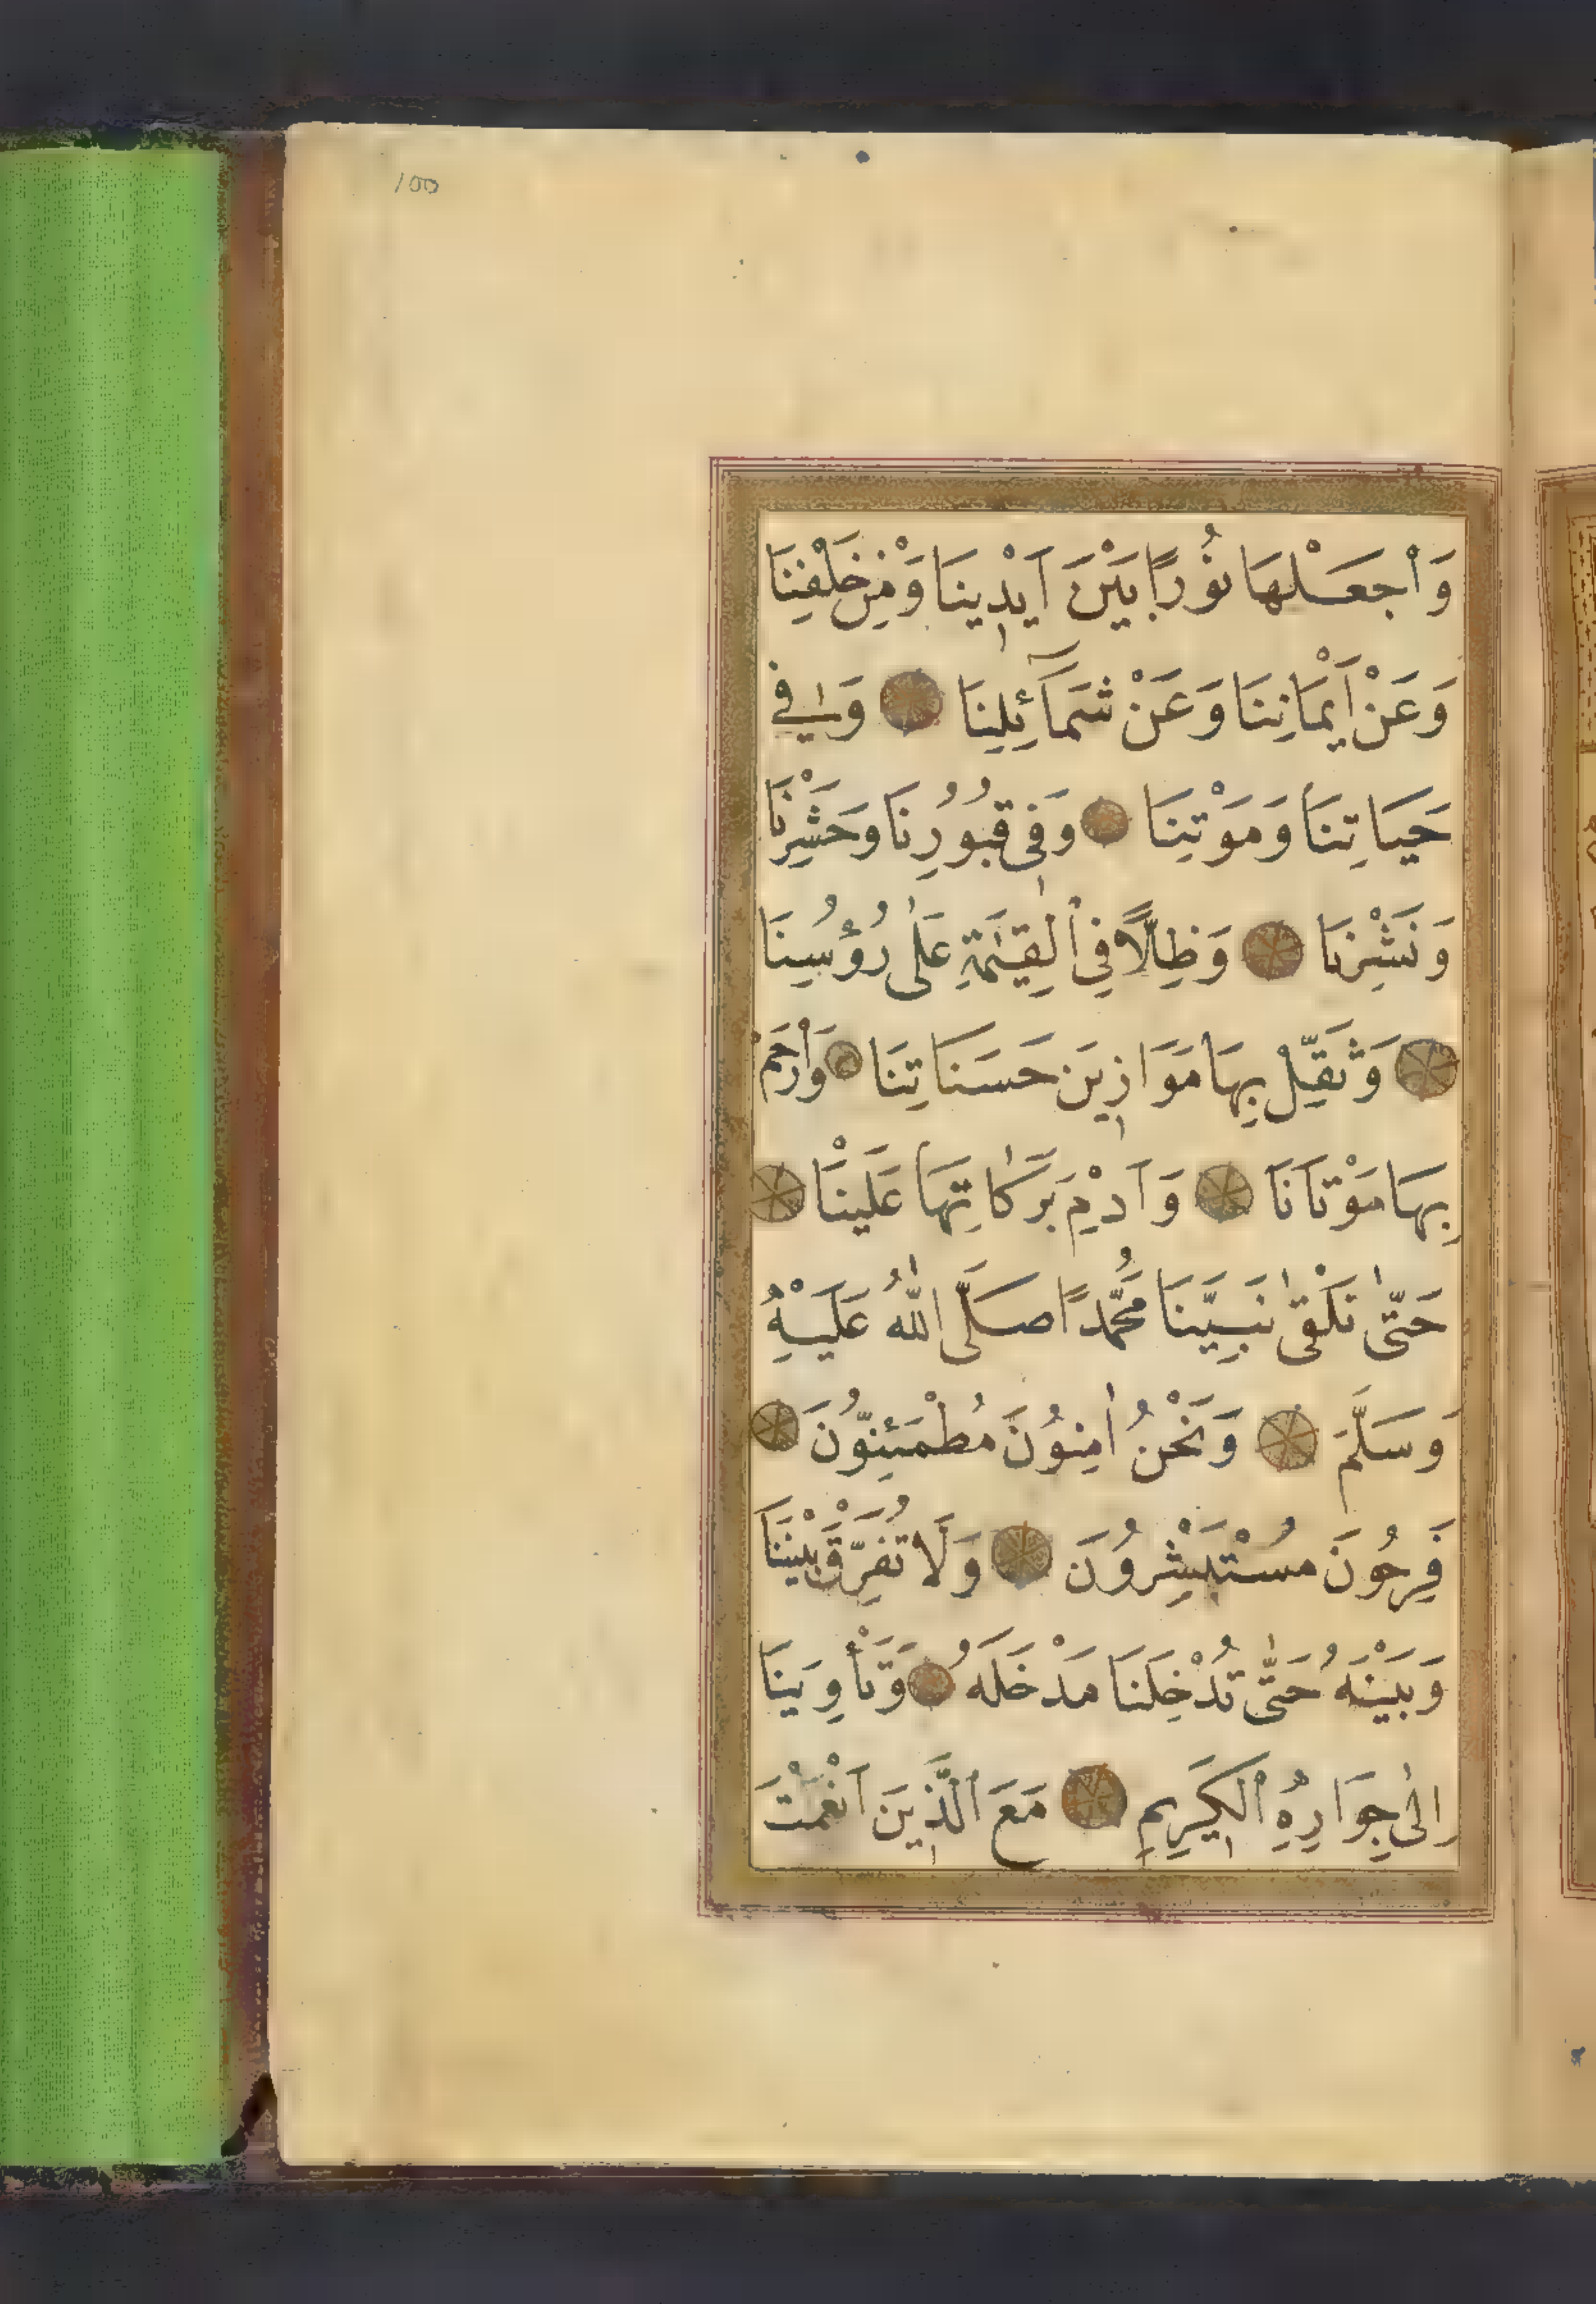 100
وَاْجعَلْهَا نُوْرًا بَيْنَ اَيْدِينَا وَمْنِ خَلْفِنَا
وَعَنْ اَيْمَانِنَا وَعَنْ شَمَآئِلِنَا وَفِي
حَيَاتِنَا وَمَوْتِنَا وَفِي قُبُوُرِنَا وَحَشْرِنَا
وَنَشْرِنَا وَظِلًّا فِي اْلقِيٰمَةِ عَلٰى رُؤُسِنَا
وَثَقِّلْ بِهَا مَوَازِينَ حَسَنَاتِنَا وَاْرْحَمْ
بِهَا مَوْتَانَا وَاَدْمِ بَرَكَاتِهَا عَلَيْنَا
حَتّٰى نَلْقٰى نَبِيَّنَا مُحَمَّدًا صَلَّى اللّٰهُ عَلَيْهِ
وَسَلَّمَ وَنَحْنُ اٰمِنُوُنَ مُطْمَئِنُّوُنَ
فَرِحُونَ مُسْتَبْشِرُوُنَ وَلَا تُفَرِّقْ بَيْنَنَا
وَبَيْنَهُ حَتّٰى تُدْخِلَنَا مَدْخَلَهُ وَتَاْوِيَنَا
اِلٰى جِوَارِهِ اْلكَرِيمِ مَعَ الَّذِينَ اَنْعَمْتَ